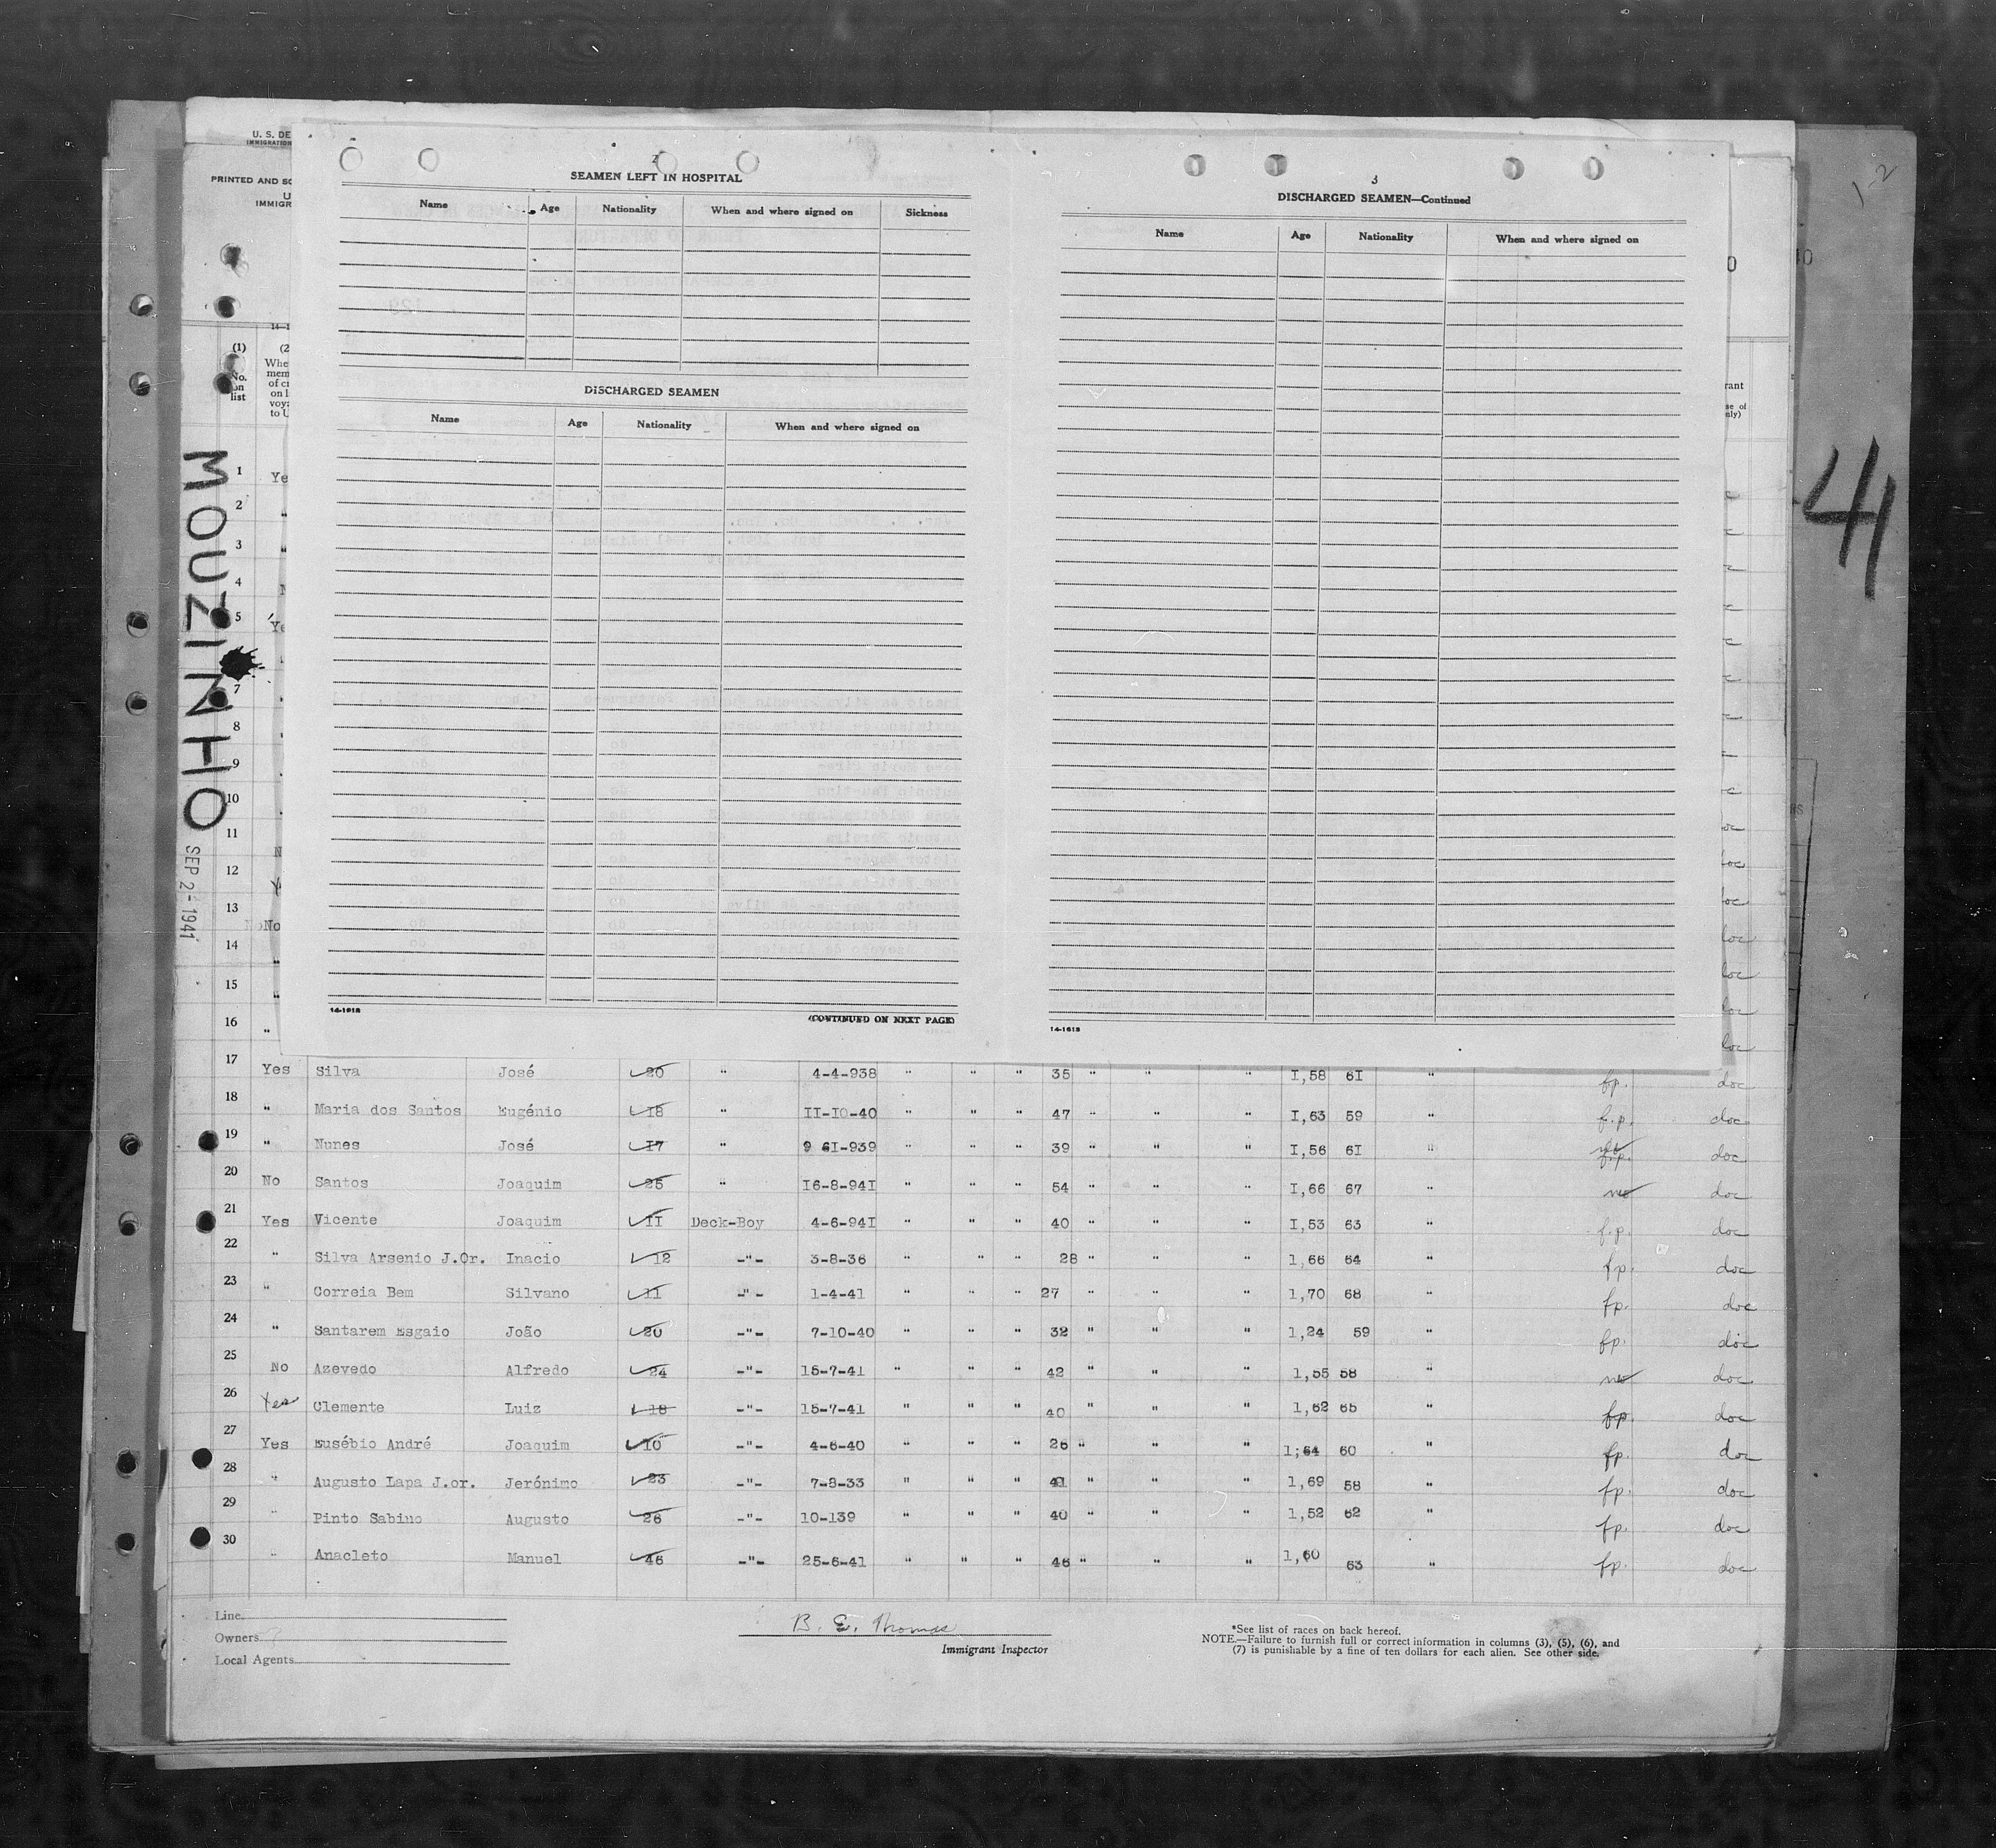 U. S. DE
IMMIGRATION
PRINTED AND SO
U
IMMIGR
2
SEAMEN LEFT IN HOSPITAL
Name Age Nationality When and where signed on Sickness
DISCHARGED SEAMEN
Name Age Nationality When and where signed on
14-1918
(CONTINUED ON NEXT PAGE)
3
DISCHARGED SEAMEN—Continued
Name Age Nationality When and where signed on
14-1918
1-2
41
MOUZINHO
SEP 2-1941
(1)
No. on list
1 Ye
2 "
3 "
4
5 Ye
7
8
9
10
11
12
13 No
14 "
15 "
16 "
17 Yes Silva José 20 " 4-4-938 " " " 35 " " " I,58 6I " fp. doc
18 " Maria dos Santos Eugénio 18 " II-I0-40 " " " 47 " " " I,63 59 " f.p. doc
19 " Nunes José I7 " 9 6I-939 " " 39 " " " I,56 6I " f.p. doc
20 No Santos Joaquim 25 " I6-8-94I " " " 54 " " " I,66 67 " no doc
21 Yes Vicente Joaquim II Deck-Boy 4-6-94I " " " 40 " " " I,53 63 " f.p. doc
22 " Silva Arsenio J.Or. Inacio 12 -"- 3-8-36 " " " 28 " " " 1,66 64 " fp. doc
23 " Correia Bem Silvano 11 -"- 1-4-41 " " " 27 " " " 1,70 68 " fp. doc
24 " Santarem Esgaio João 20 -"- 7-10-40 " " " 32 " " " 1,24 59 " fp. doc
25 No Azevedo Alfredo 24 -"- 15-7-41 " " " 42 " " " 1,55 58 " no doc
26 Yes Clemente Luiz 18 -"- 15-7-41 " " " 40 " " " 1,62 65 " fp. doc
27 Yes Eusébio André Joaquim 10 -"- 4-6-40 " " " 26 " " " 1;64 60 " fp. doc
28 " Augusto Lapa J.or. Jerónimo 23 -"- 7-8-33 " " " 41 " " " 1,69 58 " fp. doc
29 " Pinto Sabino Augusto 26 -"- 10-139 " " " 40 " " " 1,52 62 " fp. doc
30 " Anacleto Manuel 46 -"- 25-6-41 " " " 46 " " " 1,60 63 " fp. doc
Line
Owners
Local Agents
B. E. Thomas
Immigrant Inspector
*See list of races on back hereof.
NOTE.—Failure to furnish full or correct information in columns (3), (5), (6), and
(7) is punishable by a fine of ten dollars for each alien. See other side.